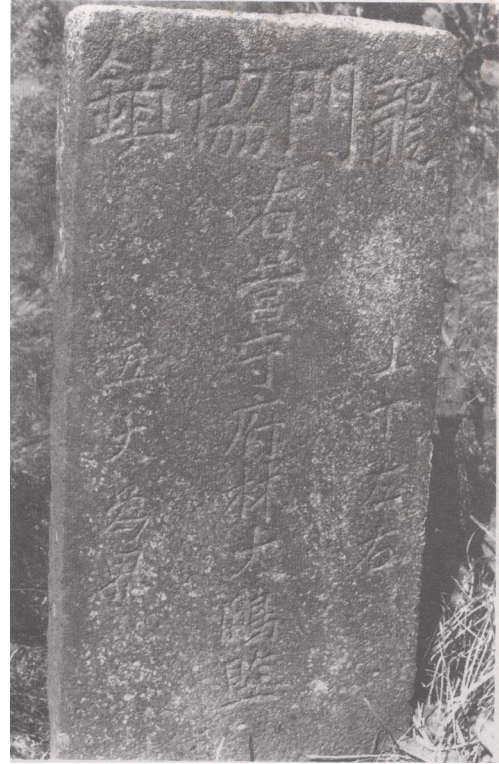 龍門協鎮
上下左右
右營守府林大鵬監
五丈爲界